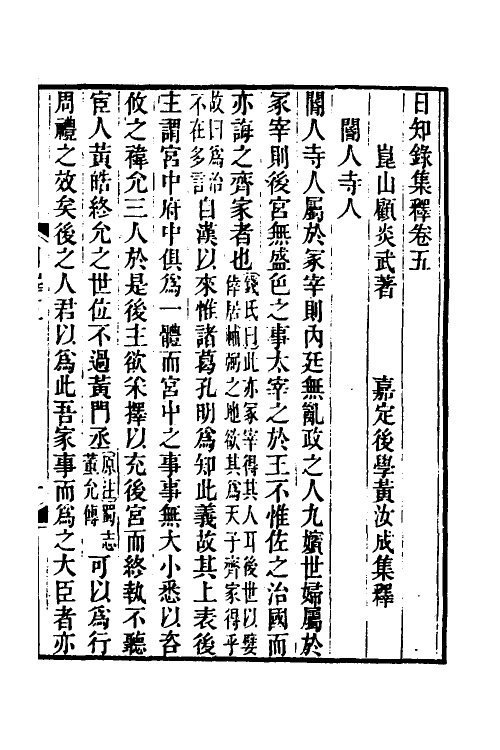 日知錄集釋卷五
崑山顧炎武著　嘉定後學黃汝成集釋
閽人寺人
閽人寺人屬於冢宰則內廷無亂政之人九嬪世婦屬於
冢宰則後宮無盛色之事太宰之於王不惟佐之治國而
亦誨之齊家者也錢氏曰此亦冢宰得其人耳後世以嬖倖居輔弼之地欲其爲天子齊家得乎
故曰爲治不在多言自漢以來惟諸葛孔明爲知此義故其上表後
主謂宮中府中俱爲一體而宮中之事事無大小悉以咨
攸之禕允三人於是後主欲采擇以充後宮而終執不聽
宦人黃皓終允之世位不過黃門丞原注蜀志董允傳可以爲行
周禮之效矣後之人君以爲此吾家事而爲之大臣者亦